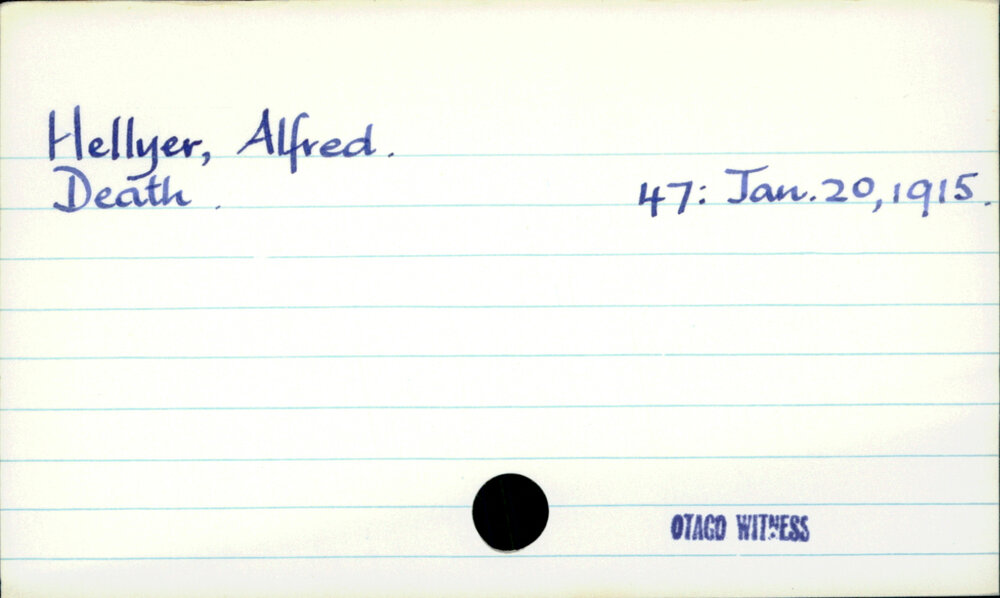 Hellyer, Alfred.
Death. 47: Jan. 20, 1915.
OTAGO WITNESS